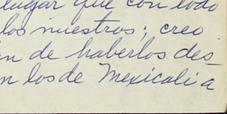 lugar que con todo
los nuestros; creo
n de haberlos des
n los de Mexicali a